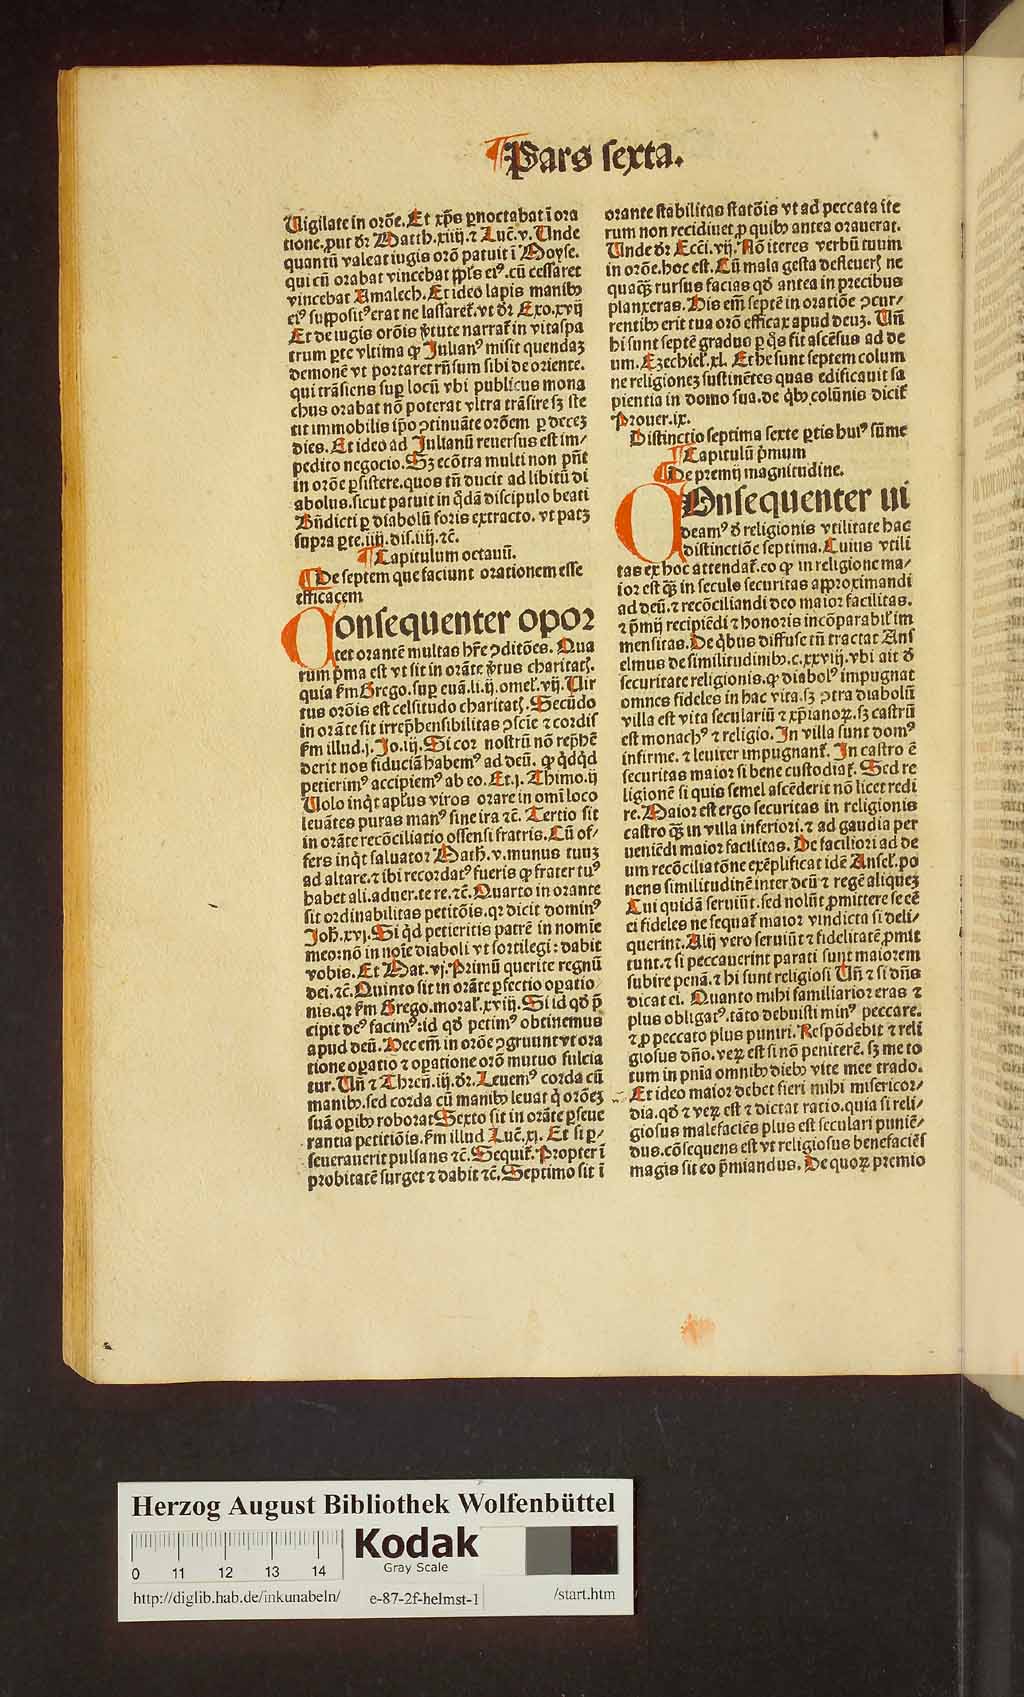 Pars sexta.
Uigilate in orōe. Et xp̄s p̲noctabat ī ora
tione. put d̄r Matth. xiiij. ⁊ Luc̄. v. Unde
quantū valeat iugis orō patuit ī Moyse.
qui cū orabat vincebat ppl̄s eiꝰ. cū cessaret
vincebat Amalech. Et ideo lapis manibꝫ
eiꝰ suppositꝰ erat ne lassaret̄. vt d̄r Exo. xvij
Et de iugis orōis v̄tute narrat̄ in vitaspa
trum p̲te vltima ꝙ Julianꝰ misit quendaꝫ
demonē vt portaret rn̄sum sibi de oriente.
qui trāsiens sup̲ locū vbi publicus mona
chus orabat nō poterat vltra trāsire sꝫ ste
tit immobilis ip̄o ꝯtinuāte orōem p̲ deceꝫ
dies. Et ideo ad Julianū reuersus est im⸗
pedito negocio. Sꝫ ecōtra multi non pn̄t
in orōe p̲sistere. quos tn̄ ducit ad libitū di
abolus. sicut patuit in q̄dā discipulo beati
Bn̄dicti p̲ diabolū foris extracto. vt patꝫ
supra p̲te. iiij. dis. iiij. ⁊c̄.
¶ Capitulum octauū.
¶ De septem que faciunt orationem esse
efficacem
Consequenter opor
tet orantē multas hr̄e ꝯditōes. Qua
rum p̄ma est vt sit in orāte v̄tus charitatꝭ.
quia fm̄ Grego. sup̲ euā. li. ij. omel̄. vij. Uir
tus orōis est celsitudo charitatꝭ. Secūdo
in orāte sit irrep̲hensibilitas ꝯscīe ⁊ cordis
fm̄ illud. j. Jo. iij. Si cor nostrū nō rep̲hē
derit nos fiduciā habemꝰ ad deū. ⁊ q̄dq̄d
petierimꝰ accipiemꝰ ab eo. Et. j. Thimo. ij
Uolo inq̄t ap̄lus viros orare in omī loco
leuātes puras manꝰ sine ira ⁊c̄. Tertio sit
in orāte recōciliatio offensi fratris. Cū of⸗
fers inq̄t saluator Math̄. v. munus tuuꝫ
ad altare. ⁊ ibi recordatꝰ fueris ꝙ frater tuꝰ
habet ali. aduer. te re. ⁊c̄. Quarto in orante
sit ordinabilitas petitōis. qꝛ dicit dominꝰ
Joh̄. xvj. Si q̄d petieritis patrē in nomīe
meo: nō in noīe diaboli vt sortilegi: dabit
vobis. Et Mat. vj. Primū querite regnū
dei. ⁊c̄. Quinto sit in orāte p̲fectio op̲atio
nis. qꝛ fm̄ Grego. moral̄. xviij. Si id qd̄ p̄
cipit deꝰ facimꝰ: id qd̄ petimꝰ obtinemus
apud deū. Nec em̄ in orōe ꝯgruunt vt ora
tione op̲atio ⁊ op̲atione orō mutuo fulcia
tur. Un̄ ⁊ Thren̄. iij. d̄r. Leuemꝰ corda cū
manibꝫ. sed corda cū manibꝫ leuat q̄ orōeꝫ
suā op̲ibꝫ roborat Sexto sit in orāte p̲seue
rantia petitiōis. fm̄ illud Luc̄. xj. Et si p̲⸗
seuerauerit pulsans ⁊c̄. Sequit̄. Propter ī
probitatē surget ⁊ dabit ⁊c̄. Septimo sit ī
orante stabilitas statōis vt ad peccata ite
rum non recidiuet. p̲ quibꝫ antea orauerat.
Unde d̄r Ecc̄i. vij. Nō iteres verbū tuum
in orōe. hoc est. Cū mala gesta defleuerꝭ ne
quaqꝫ rursus facias qd̄ antea in precibus
planxeras. His em̄ septē in oratiōe ꝯcur⸗
rentibꝫ erit tua orō efficax apud deuꝫ. Un̄
hi sunt septē gradus p̲ q̄s fit ascēsus ad de
um. Ezechiel̄. xl. Et he sunt septem colum
ne religioneꝫ sustinētes quas edificauit sa
pientia in domo sua. de q̄bꝫ colūnis dicit̄
Prouer. ix.
Distinctio septima sexte p̲tis huiꝰ sūme
¶ Capitulū p̄mum
¶ De premij magnitudine.
Consequenter ui
deamꝰ d̄ religionis vtilitate hac
distinctiōe septima. Cuius vtili
tas ex hoc attendat̄. eo ꝙ in religione ma⸗
ior est qꝫ in seculo securitas approximandi
ad deū. ⁊ recōciliandi deo maior facilitas.
⁊ p̄mij recipiēdi ⁊ honoris incōparabil̄ im
mensitas. De q̄bus diffuse tn̄ tractat Ans
elmus de similitudinibꝫ. c. xxviij. vbi ait d̄
securitate religionis. ꝙ diabolꝰ impugnat
omnes fideles in hac vita. sꝫ ꝯtra diabolū
villa est vita seculariū ⁊ xp̄ianoꝝ. sꝫ castrū
est monachꝰ ⁊ religio. In villa sunt domꝰ
infirme. ⁊ leuiter impugnant̄. In castro ē
securitas maior si bene custodiat̄. Sed re
ligionē si quis semel ascēderit nō licet redi
re. Maior est ergo securitas in religionis
castro qꝫ in villa inferiori. ⁊ ad gaudia per
ueniēdi maior facilitas. De faciliori ad de
um recōciliatōne exēplificat idē Ansel̄. po
nens similitudinē inter deū ⁊ regē aliqueꝫ
Cui quidā seruiūt. sed nolūt p̲mittere se eē
ei fideles ne sequat̄ maior vindicta si deli⸗
querint. Alij vero seruiūt ⁊ fidelitatē p̲mit
tunt. ⁊ si peccauerint parati sunt maiorem
subire penā. ⁊ hi sunt religiosi Un̄ ⁊ si dn̄s
dicat ei. Quanto mihi familiarior eras ⁊
plus obligatꝰ. tāto debuisti minꝰ peccare.
⁊ p̲ peccato plus puniri. Respōdebit ⁊ reli
giosus dn̄o. veꝝ est si nō peniterē. sꝫ me to
tum in pn̄ia omnibꝫ diebꝫ vite mee trado.
Et ideo maior debet fieri mihi misericor⸗
dia. qd̄ ⁊ veꝝ est ⁊ dictat ratio. quia si reli⸗
giosus malefaciēs plus est seculari puniē⸗
dus. cōsequens est vt religiosus benefaciēs
magis sit eo p̄miandus. De quoꝝ premio
Herzog August Bibliothek Wolfenbüttel
Kodak
Gray Scale
0 11 12 13 14
http://diglib.hab.de/inkunabeln/ e-87-2f-helmst-1 /start.htm